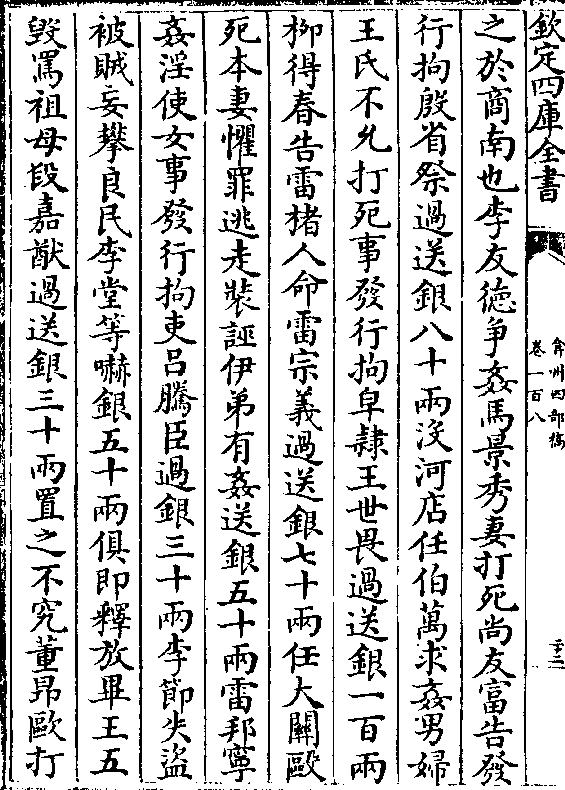 欽定四庫全書
弇州四部稿
卷一百八
二十二
之於商南也李友徳争姦馬景秀妻打死尚友富告發
行拘殷省祭過送銀八十兩沒河店任伯萬求姦男婦
王氏不允打死事發行拘皁隷王世畏過送銀一百兩
柳得春告雷猪人命雷宗義過送銀七十兩任大闗毆
死本妻懼罪逃走裝誣伊弟有姦送銀五十兩雷邦寧
姦淫使女事發行拘吏吕騰臣過銀三十兩李節失盜
被賊妄攀良民李堂等嚇銀五十兩俱即釋放畢王五
毀罵祖母段嘉猷過送銀三十兩置之不究董昂毆打